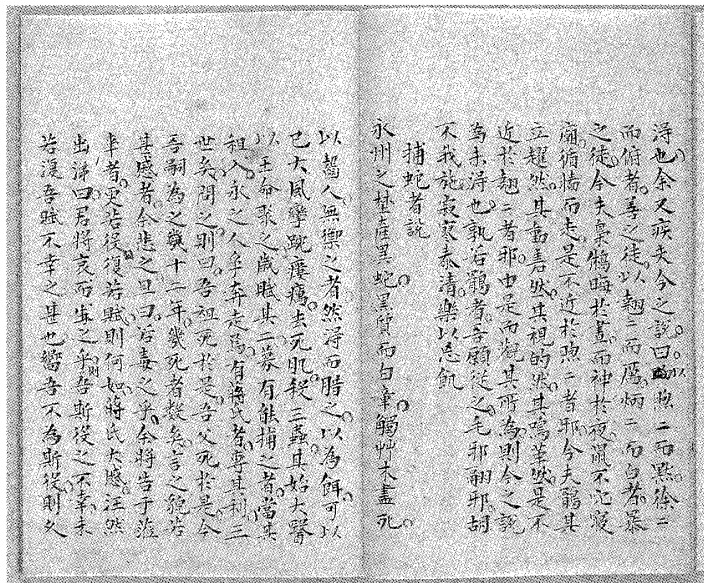 淂也余又疾夫今之説曰以煦二而黙徐二
而俯者善之徒以翹二而厲炳二而白者暴
之徒今夫梟鵂晦於晝而神於夜鼠不穴寢
廟循墻而走是不近於煦二者邪今夫鶻其
立趯然其動砉然其視的然其鳴革然是不
近於翹二者邪由是而觀其所為則今之説
為未淂也孰若鶻者吾願從之毛邪翮邪胡
不我施寂寥泰清樂以忘飢
捕蛇者説
永州之埜産異蛇黒質而白章觸艸木盡死
以齧人無禦之者然淂而腊之以為餌可以
已大風攣踠瘻癘去死肌殺三蟲其始大醫
以王命聚之歲賦其二募有能捕之者當其
租入永之人爭奔走焉有蔣氏者專其利三
世矣問之則曰吾祖死於是吾父死於是今
吾嗣為之幾十二年幾死者數矣言之貌若
甚慼者余悲之且曰若毒之乎余將告于蒞
事者更若役復若賦則何如蔣氏大慼汪然
出涕曰君將哀而生之乎則吾斯役之不幸未
若復吾賦不幸之甚也嚮吾不為斯役則久